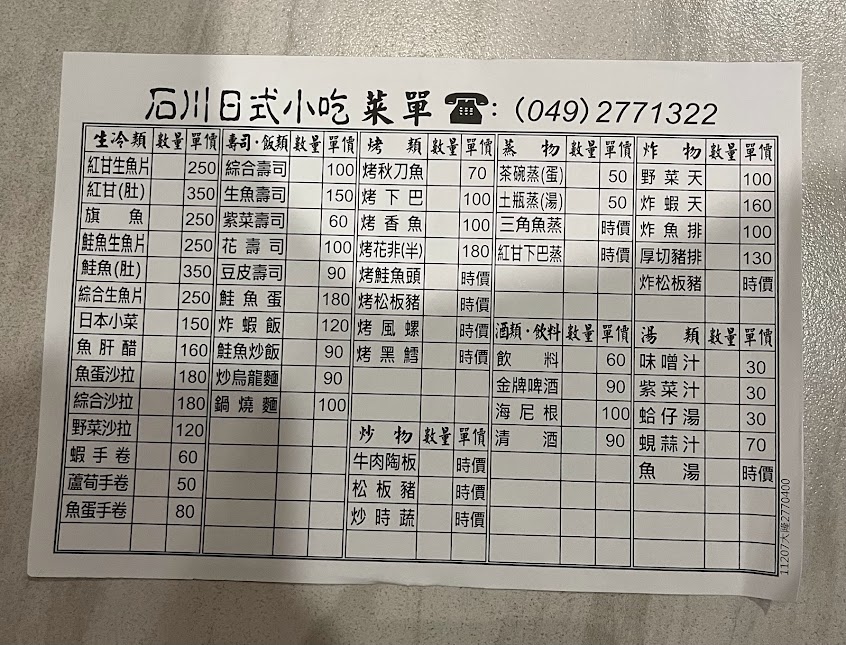 石川日式小吃菜單☎:(049)2771322
生冷類 數量 單價
紅甘生魚片 250
紅甘(肚) 350
旗魚 250
鮭魚生魚片 250
鮭魚(肚) 350
綜合生魚片 250
日本小菜 150
魚肝醋 160
魚蛋沙拉 180
綜合沙拉 180
野菜沙拉 120
蝦手卷 60
蘆荀手卷 50
魚蛋手卷 80
壽司·飯類 數量 單價
綜合壽司 100
生魚壽司 150
紫菜壽司 60
花壽司 100
豆皮壽司 90
鮭魚蛋 180
炸蝦飯 120
鮭魚炒飯 90
炒烏龍麵 90
鍋燒麵 100
烤類 數量 單價
烤秋刀魚 70
烤下巴 100
烤香魚 100
烤花非(半) 180
烤鮭魚頭 時價
烤松板豬 時價
烤風螺 時價
烤黑鱈 時價
炒物 數量 單價
牛肉陶板 時價
松板豬 時價
炒時蔬 時價
蒸物 數量 單價
茶碗蒸(蛋) 50
土瓶蒸(湯) 50
三角魚蒸 時價
紅甘下巴蒸 時價
酒類·飲料 數量 單價
飲料 60
金牌啤酒 90
海尼根 100
清酒 90
炸物 數量 單價
野菜天 100
炸蝦天 160
炸魚排 100
厚切豬排 130
炸松板豬 時價
湯類 數量 單價
味噌汁 30
紫菜汁 30
蛤仔湯 30
蜆蒜汁 70
魚湯 時價
11207大隆2770400